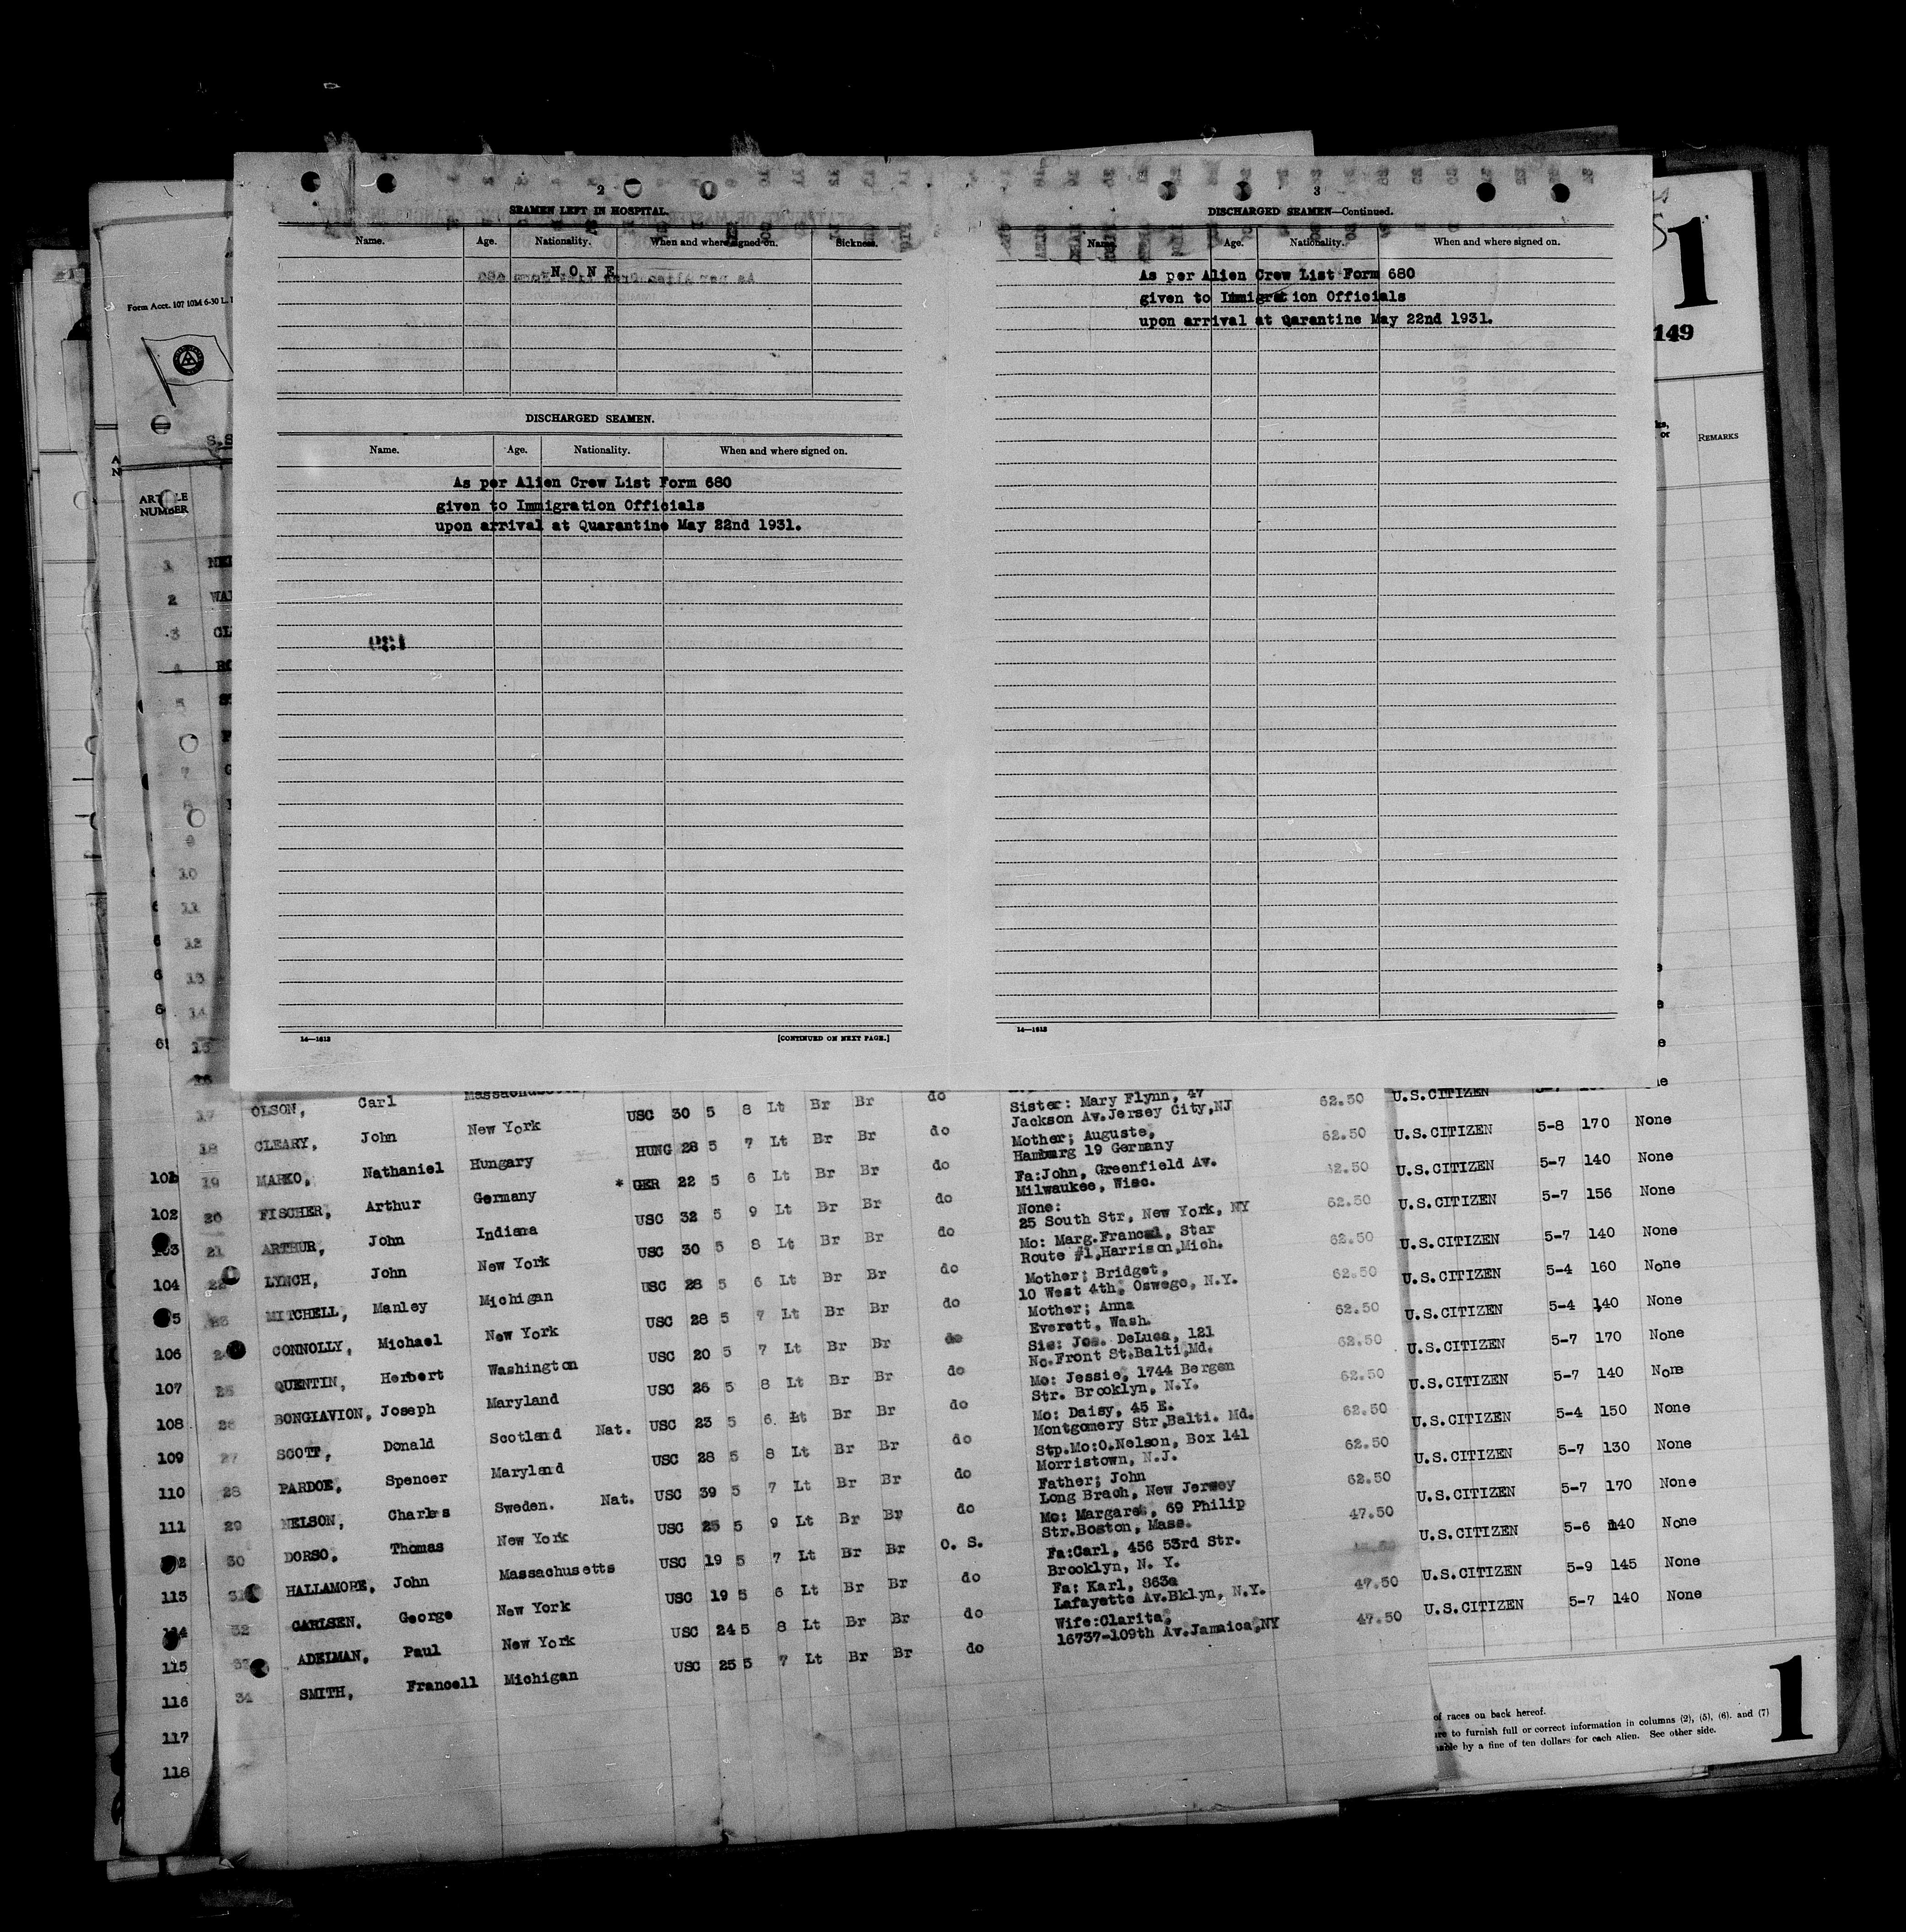 2
SEAMEN LEFT IN HOSPITAL.
Name. Age. Nationality. When and where signed on. Sickness.
N O N E
DISCHARGED SEAMEN.
Name. Age. Nationality. When and where signed on.
As per Alien Crew List Form 680
given to Immigration Officials
upon arrival at Quarantine May 22nd 1931.
14—1613
[CONTINUED ON NEXT PAGE.]
3
DISCHARGED SEAMEN—Continued.
Name. Age. Nationality. When and where signed on.
As per Alien Crew List Form 680
given to Immigration Officials
upon arrival at Qarantine May 22nd 1931.
14—1613
1
149
REMARKS
Form Acct. 107 10M 6-30 L.
S.S
ARTICLE
NUMBER
1
2
3
4
5
7
8
9
10
11
12
13
14
15
16
17 OLSON, Carl Massachusetts USC 30 5 8 Lt Br Br do Sister: Mary Flynn, 47 62.50 U.S.CITIZEN
Jackson Av.Jersey City,NJ
18 CLEARY, John New York HUNG 28 5 7 Lt Br Br do Mother; Auguste, 62.50 U.S.CITIZEN 5-8 170 None
Hamburg 19 Germany
101 19 MARKO, Nathaniel Hungary * GER 22 5 6 Lt Br Br do Fa:John, Greenfield Av. 62.50 U.S.CITIZEN 5-7 140 None
Milwaukee, Wisc.
102 20 FISCHER, Arthur Germany USC 32 5 9 Lt Br Br do None: 62.50 U.S.CITIZEN 5-7 156 None
25 South Str, New York, NY
103 21 ARTHUR, John Indiana USC 30 5 8 Lt Br Br do Mo: Marg.Francal, Star 62.50 U.S.CITIZEN 5-7 140 None
Route #1,Harrison,Mich.
104 22 LYNCH, John New York USC 28 5 6 Lt Br Br do Mother; Bridget, 62.50 U.S.CITIZEN 5-4 160 None
10 West 4th, Oswego, N.Y.
5 23 MITCHELL, Manley Michigan USC 28 5 7 Lt Br Br do Mother; Anna 62.50 U.S.CITIZEN 5-4 140 None
Everett, Wash.
106 CONNOLLY, Michael New York USC 20 5 7 Lt Br Br do Sis: Jos. DeLuca, 121 62.50 U.S.CITIZEN 5-7 170 None
No.Front St.Balti,Md.
107 25 QUENTIN, Herbert Washington USC 26 5 8 Lt Br Br do Mo: Jessie, 1744 Bergen 62.50 U.S.CITIZEN 5-7 140 None
Str. Brooklyn, N.Y.
108 26 BONGIAVION, Joseph Maryland USC 23 5 6. Lt Br Br do Mo: Daisy, 45 E. 62.50 U.S.CITIZEN 5-4 150 None
Montgomery Str,Balti. Md.
109 27 SCOTT, Donald Scotland Nat. USC 28 5 8 Lt Br Br do Stp.Mo:O.Nelson, Box 141 62.50 U.S.CITIZEN 5-7 130 None
Morristown, N.J.
110 28 PARDOE, Spencer Maryland USC 39 5 7 Lt Br Br do Father; John 62.50 U.S.CITIZEN 5-7 170 None
Long Brach, New Jersey
111 29 NELSON, Charles Sweden. Nat. USC 25 5 9 Lt Br Br do Mo: Margaret, 69 Philip 47.50 U.S.CITIZEN 5-6 140 None
Str.Boston, Mass.
30 DORSO, Thomas New York USC 19 5 7 Lt Br Br O. S. Fa:Carl, 456 53rd Str. U.S.CITIZEN 5-9 145 None
Brooklyn, N. Y.
113 31 HALLAMORE, John Massachusetts USC 19 5 6 Lt Br Br do Fa: Karl, 863a 47.50 U.S.CITIZEN 5-7 140 None
Lafayette Av.Bklyn, N.Y.
32 CARLSEN, George New York USC 24 5 8 Lt Br Br do Wife:Clarita, 47.50
16737-109th Av.Jamaica,NY
115 ADELMAN, Paul New York USC 25 5 7 Lt Br Br do
116 34 SMITH, Francell Michigan
117
118
of races on back hereof.
to furnish full or correct information in columns (2), (5), (6). and (7)
by a fine of ten dollars for each alien. See other side.
1